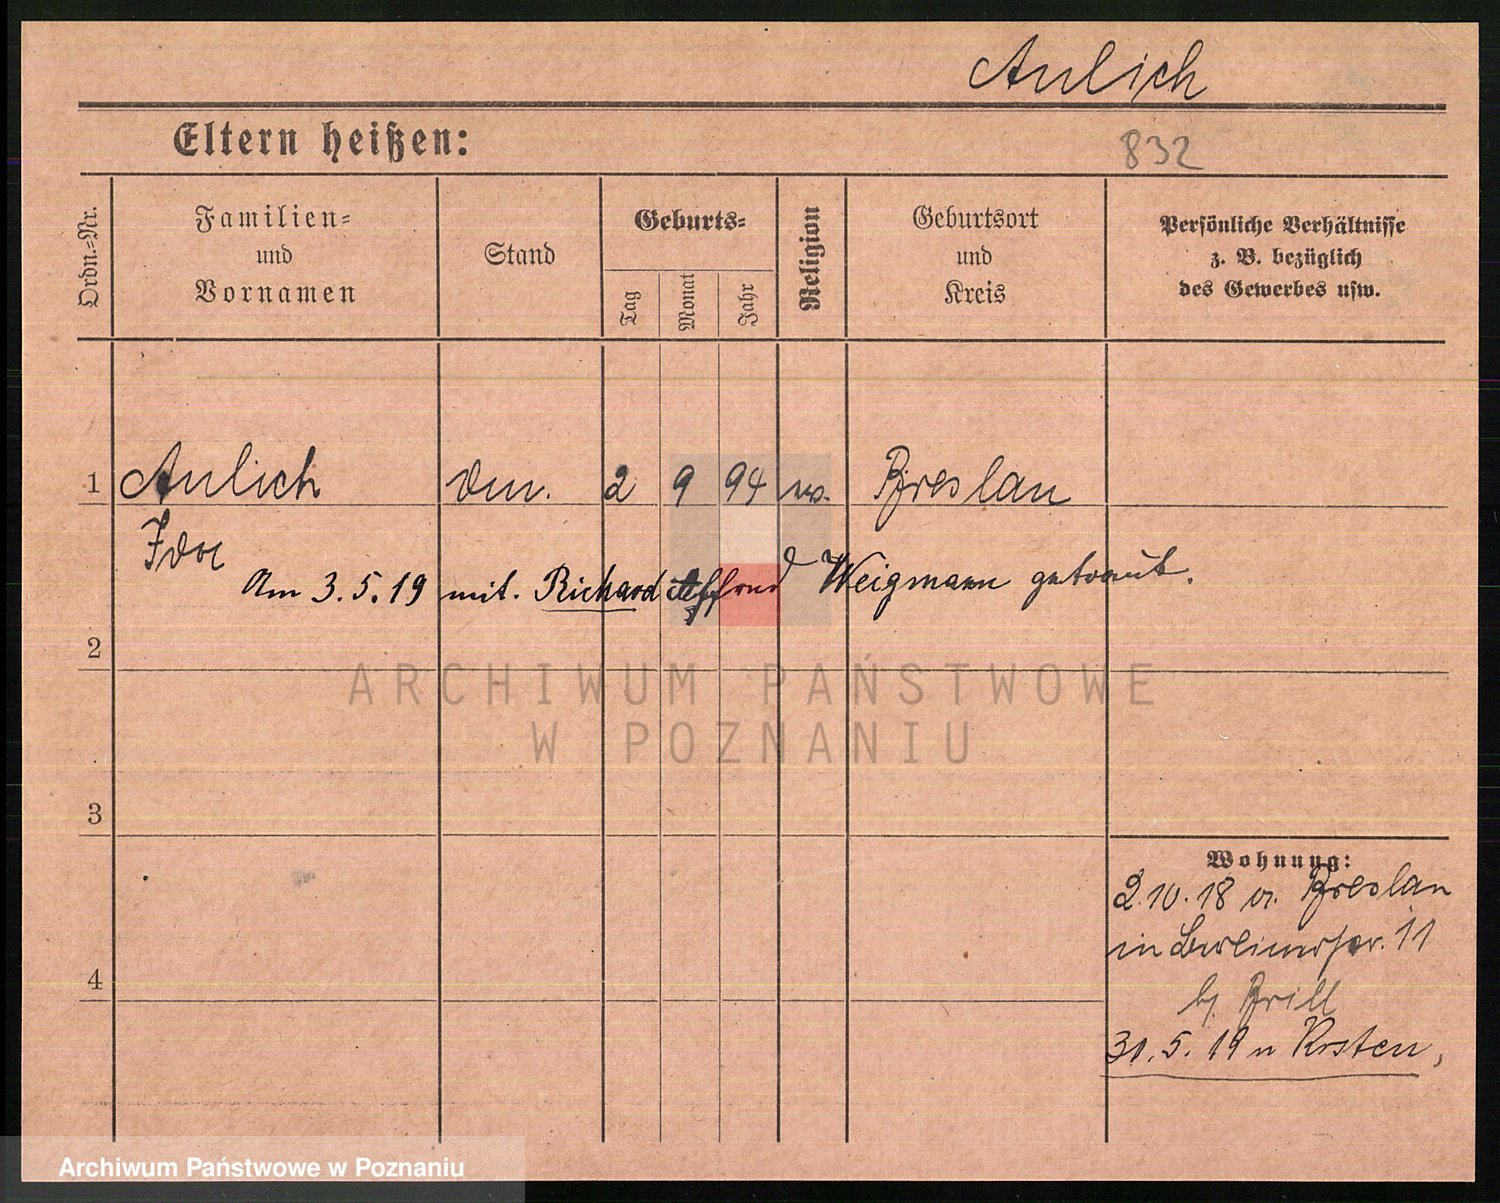 Aulich
Eltern heißen:
832
Ordn.=Nr.
Familien=
und
Vornamen
Stand
Geburts=
Tag
Monat
Jahr
Religion
Geburtsort
und
Kreis
Persönliche Verhältnisse
z. B. bezüglich
des Gewerbes usw.
1 Aulich 2 9 94 Breslau
Am 3.5.19 mit. Richard Weigmann getraut.
2
ARCHIWUM PAŃSTWOWE
W POZNANIU
3
Wohnung:
2.10.18 v. Breslau
in Berlinerstr. 11
b/ Brill
4
31.5.19 n
Archiwum Państwowe w Poznaniu